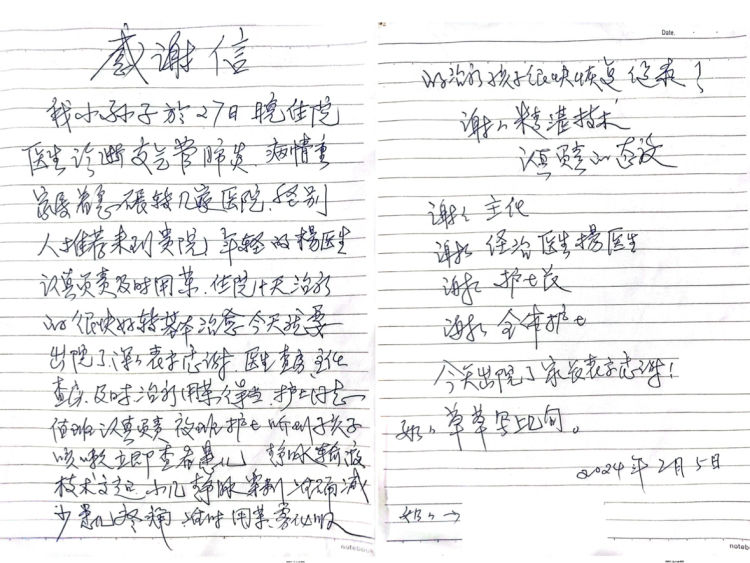 感谢信
我小孙子於27日晚住院
医生诊断支气管肺炎.病情重
家长着急辗转几家医院.经别
人推荐来到贵院,年轻的楊医生
认真负责及时用药.住院十天治疗
的很快好转基本治愈今天就要
出院了深深表示志谢 医生查房主任
查房.及时治疗用药得当 护士同志
值班认真负责 夜班护士听到孩子
咳嗽立即查看患儿 静脉输液
技术过 小儿静脉穿刺 准确减
少患儿疼痛 准时用药雾化吸
Date.
的治疗孩子很快恢复健康!
谢谢精湛技术
认真负责的态度
谢谢 主任
谢谢 经治医生楊医生
谢谢 护士长
谢谢 全体护士
今天出院了家长表示志谢!
草草写上几句。
2024年2月5日
notebook
notebook